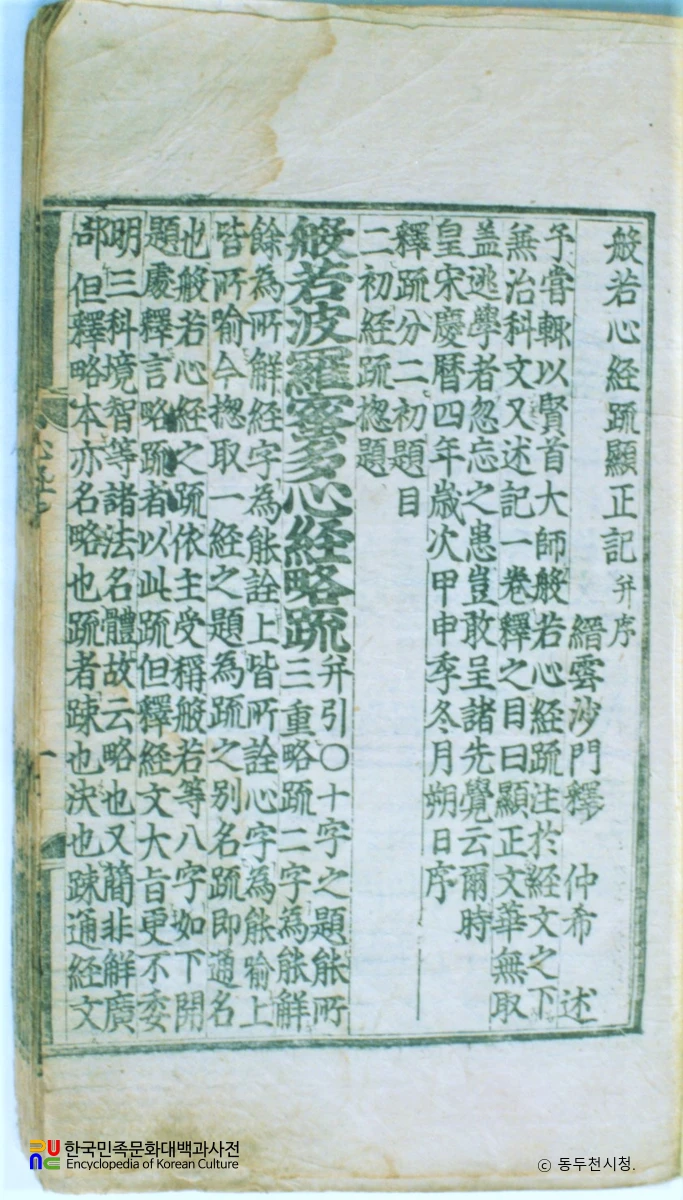 般若心経疏顯正記 并序
縉雲沙門釋 仲希 述
予甞輙以賢首大師般若心経疏注於経文之下
無治科文又述記一卷釋之目曰顯正文華無取
盖逃學者忽忘之患豈敢呈諸先覺云爾時
皇宋慶曆四年歲次甲申季冬月朔日序
釋疏分二初題目
二初経疏揔題
般若波羅蜜多心経略疏 并引〇十字之題能所
三重略疏二字為能解
餘為所解経字為能詮上皆所詮心字為能喻上
皆所喻今揔取一経之題為疏之别名疏即通名
也般若心経之疏依主受稱般若等八字如下開
題處釋言略疏者以此疏但釋経文大旨更不委
明三科境智等諸法名體故云略也又蕳非解廣
部但釋略本亦名略也疏者踈也決也踈通経文
한국민족문화대백과사전
Encyclopedia of Korean Culture
© 동두천시청.